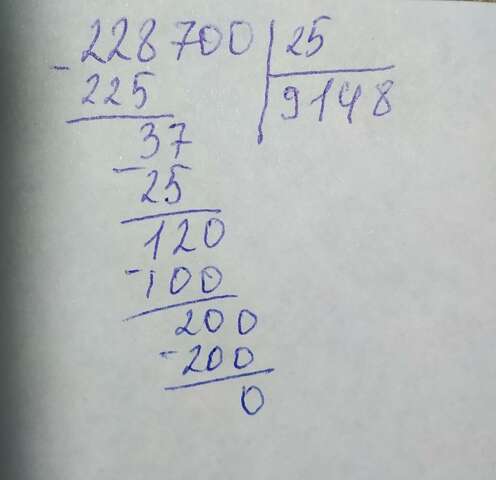 228700 25
- 225 9148
37
- 25
120
- 100
200
- 200
0